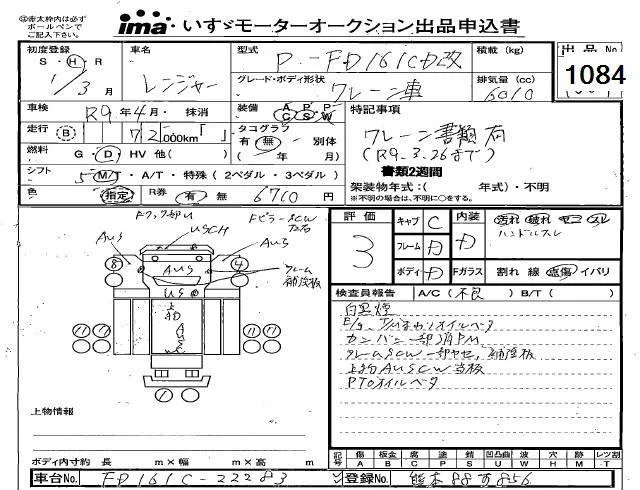 ㊟赤太枠内は必ず
ボールペンで
ご記入下さい。
ima・いすゞモーターオークション出品申込書
初度登録
S・H・R
1/3月
車名
レンジャー
型式
P-FD161CD改
グレード・ボディ形状
クレーン車
積載(kg)
排気量(cc)
6010
出品No
1084
車検
R9年4月・抹消
装備
A P P
C S W
走行
B
72,000km
タコグラフ
有 無 別体
( 年 月)
燃料
G・D・HV 他( )
シフト
5 M/T・A/T・特殊(2ペダル・3ペダル)
色
指定
R券
有 無
6710円
特記事項
クレーン書類有
(R9.3.26まで)
書類2週間
架装物年式:( 年式)・不明
※不明の場合は、不明に○をする。
Fフック部U
USCH
AUS
AUS
フレーム
補強板
8
4
AUS
US
上物情報
ボディ内寸約 長 m×幅 m×高 m
評価
3
キャブ
C
フレーム
D
ボディ
D
内装
D
Fガラス
汚れ 破れ コゲ スレ
ハンドルスレ
割れ 線 点傷 イバリ
検査員報告
A/C(不良) B/T( )
白黒煙
E/g、T/Mまわりオイルベタ
カンバン一部消PM
フレームSCW一部ヤセ、補強板
上物AUSCW当板
PTOオイルベタ
記号
傷 板金 腐 塗 錆 凹凸曲 波 穴 跡 レツ割
A B C P S U W H M T
車台No.
FD161C-22283
登録No.
熊本88